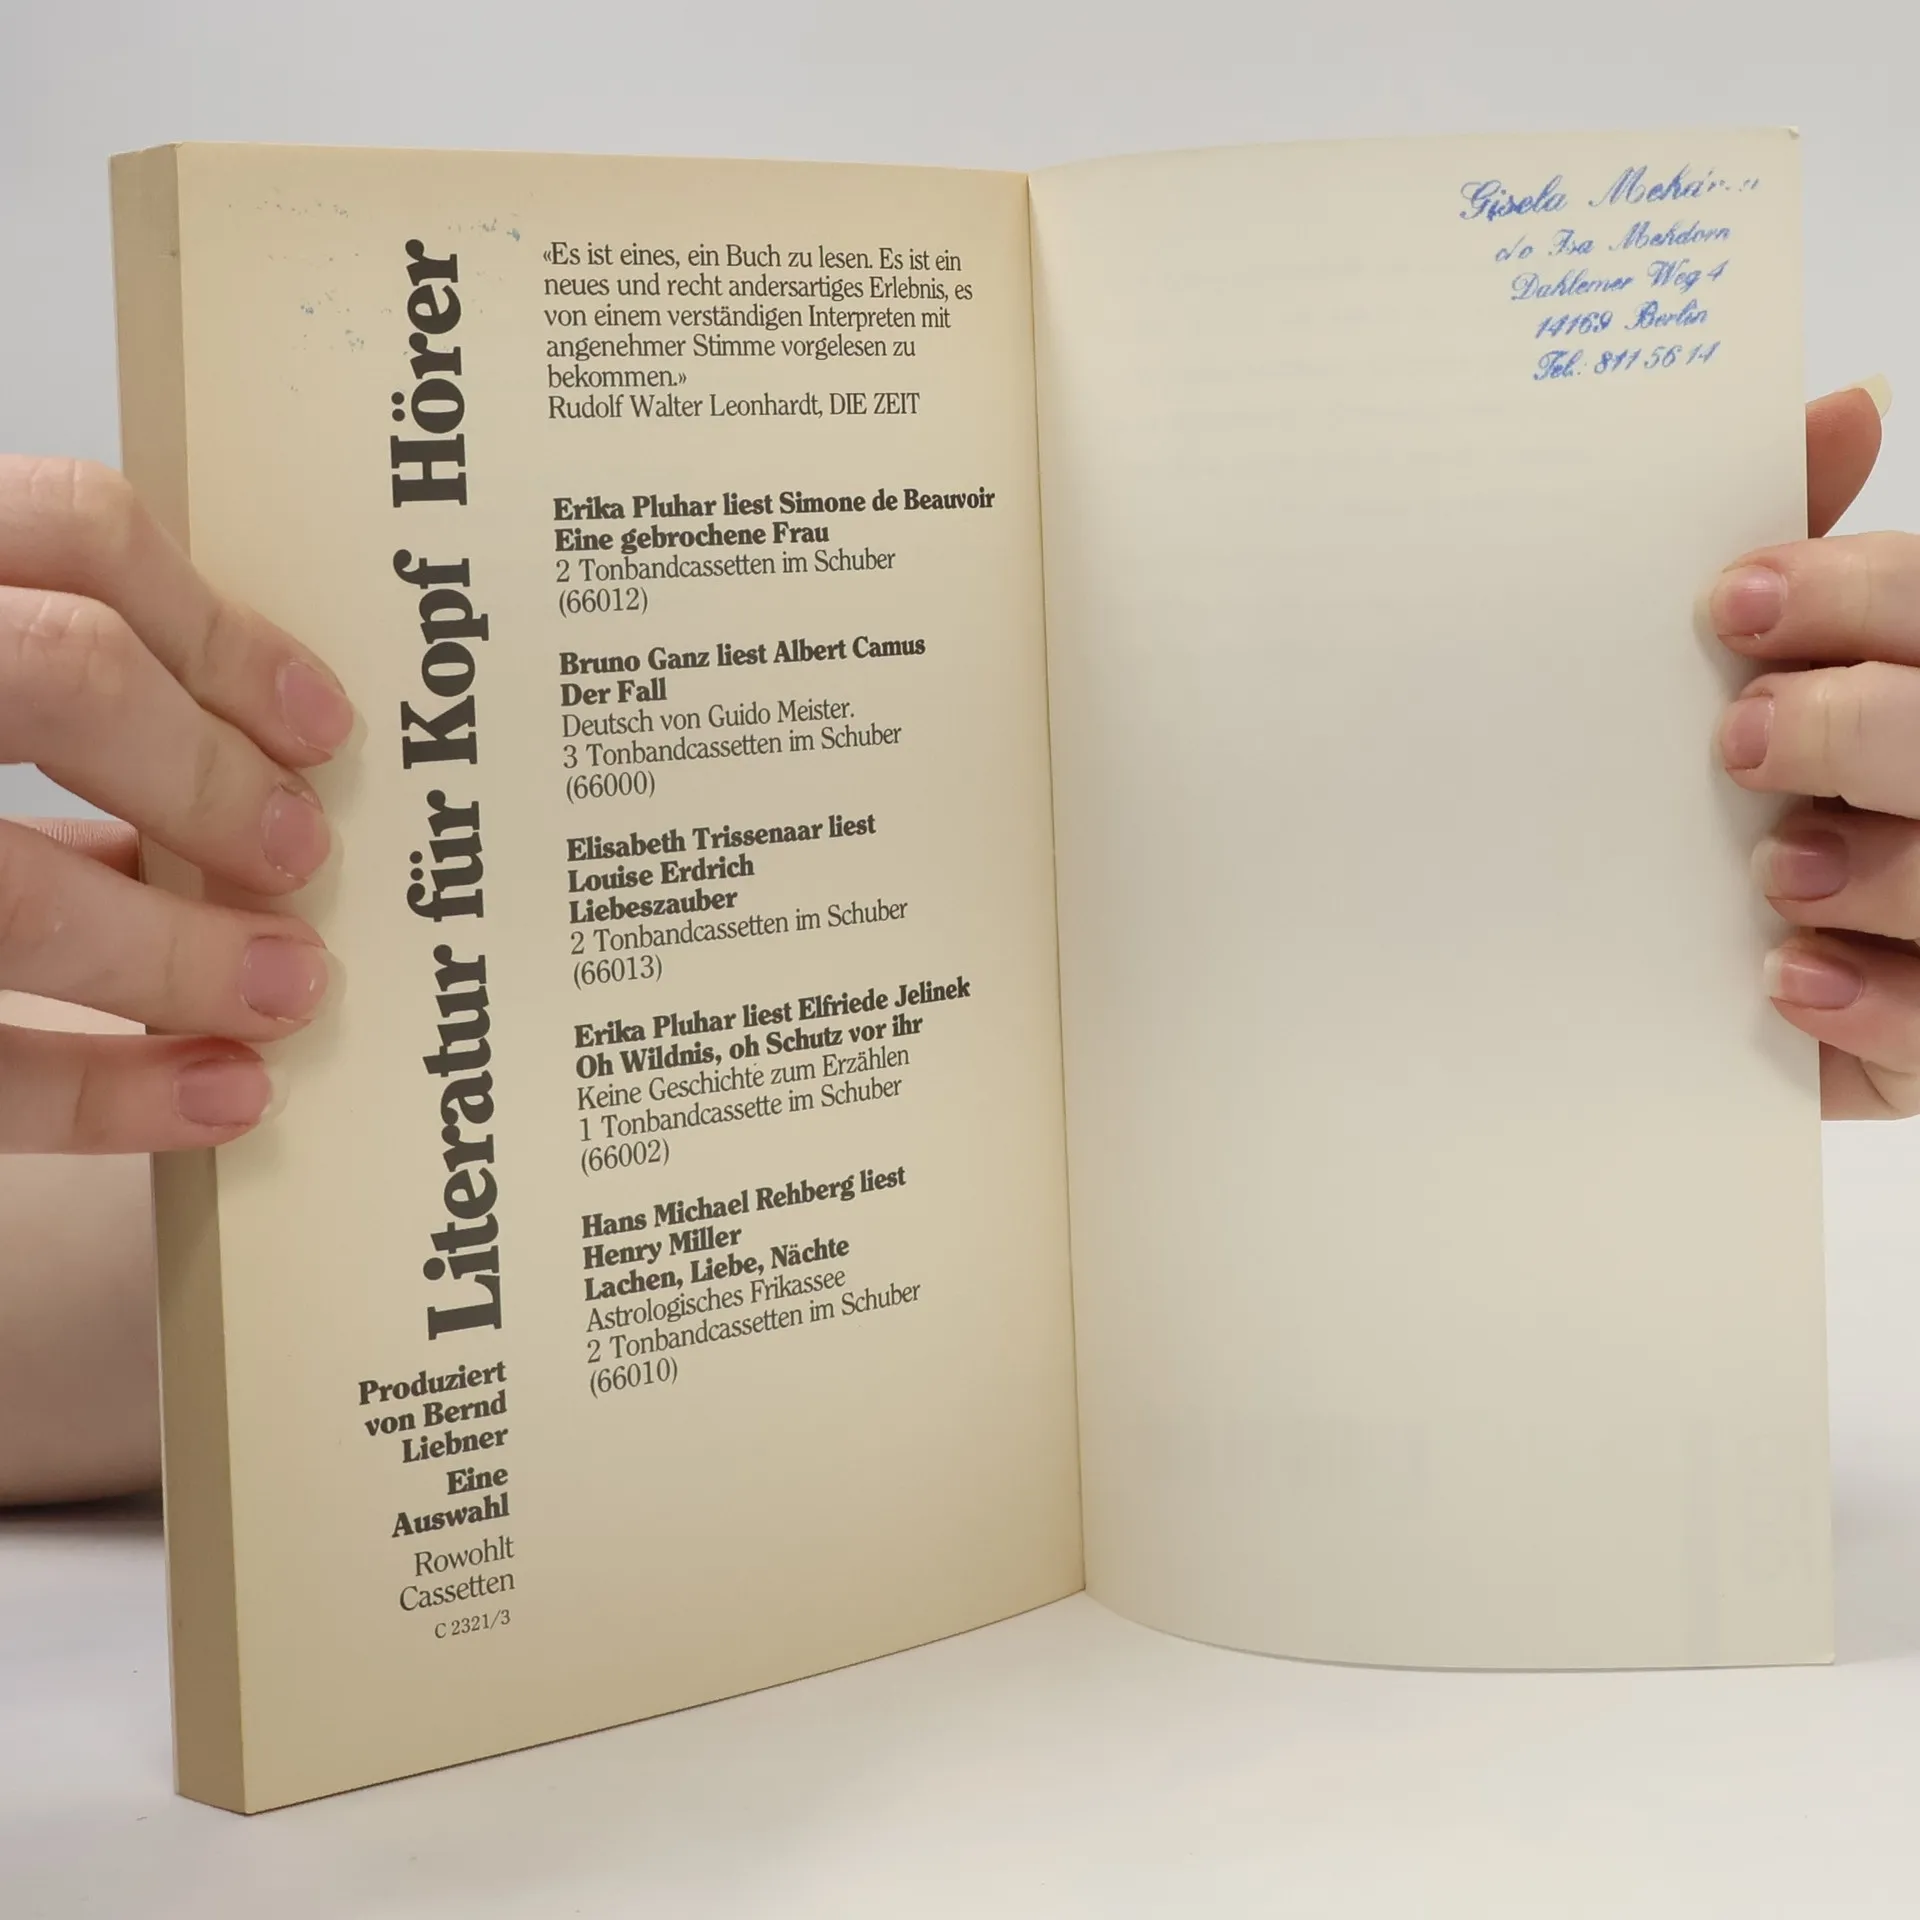 Literatur für Kopf Hörer
Produziert
von Bernd
Liebner
Eine
Auswahl
Rowohlt
Cassetten
C 2321/3
«Es ist eines, ein Buch zu lesen. Es ist ein
neues und recht andersartiges Erlebnis, es
von einem verständigen Interpreten mit
angenehmer Stimme vorgelesen zu
bekommen.»
Rudolf Walter Leonhardt, DIE ZEIT
Erika Pluhar liest Simone de Beauvoir
Eine gebrochene Frau
2 Tonbandcassetten im Schuber
(66012)
Bruno Ganz liest Albert Camus
Der Fall
Deutsch von Guido Meister.
3 Tonbandcassetten im Schuber
(66000)
Elisabeth Trissenaar liest
Louise Erdrich
Liebeszauber
2 Tonbandcassetten im Schuber
(66013)
Erika Pluhar liest Elfriede Jelinek
Oh Wildnis, oh Schutz vor ihr
Keine Geschichte zum Erzählen
1 Tonbandcassette im Schuber
(66002)
Hans Michael Rehberg liest
Henry Miller
Lachen, Liebe, Nächte
Astrologisches Frikassee
2 Tonbandcassetten im Schuber
(66010)
Gisela
c/o Isa Mehdorn
Dahlemer Weg 4
14169 Berlin
Tel.: 811 56 14